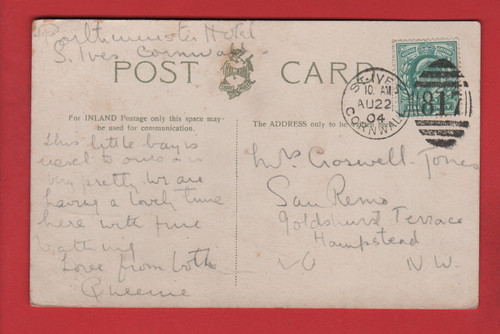 Porthminster Hotel
St. Ives Cornwall
POST CARD
For INLAND Postage only this space may
be used for communication.
The ADDRESS only to be
ST. IVES
10. AM
AU 22
04
CORNWALL
817
This little bay is
very pretty we are
having a lovely time
here with fine
bathing
Love from both
Queenie
Mrs Croswell-Jones
San Remo
Goldhurst Terrace
Hampstead
N.W.